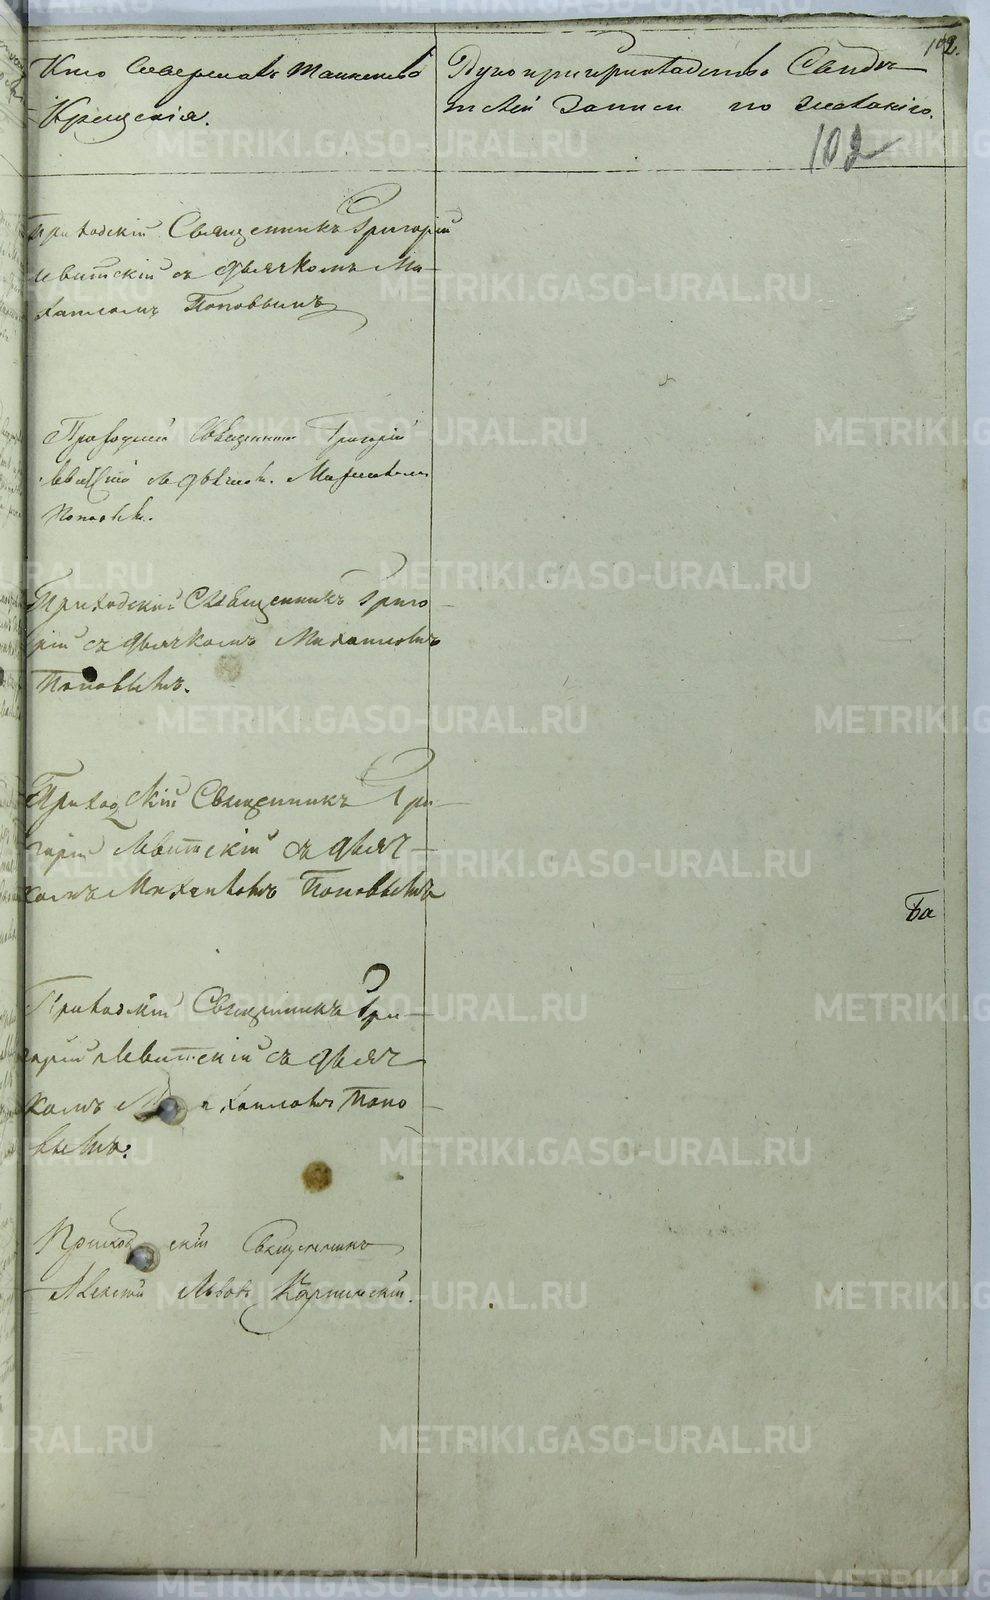 102.
Кто совершалъ таинство
Крещенія.
Рукоприкладство Свидѣ-
телей Записи по желанію.
102
Приходскій Священникъ Григорій
Левитскій съ дьячкомъ Ми-
хаиломъ Поповымъ
Приходскій Священникъ Григорій
Левитскій съ дьячком. Михаиломъ
Поповым.
Приходскій Священникъ Григо-
рій съ дьячкомъ Михаиломъ
Поповымъ.
Приходскій Священникъ Гри-
горій Левитскій съ дьяч-
комъ Михаиломъ Поповымъ
Ба
Приходскій Священникъ Гри-
горій Левитскій съ дьяч-
комъ Михаиломъ Попо-
вымъ.
Приходскій Священникъ
Алексій Львовъ Карпинскій.
METRIKI.GASO-URAL.RU